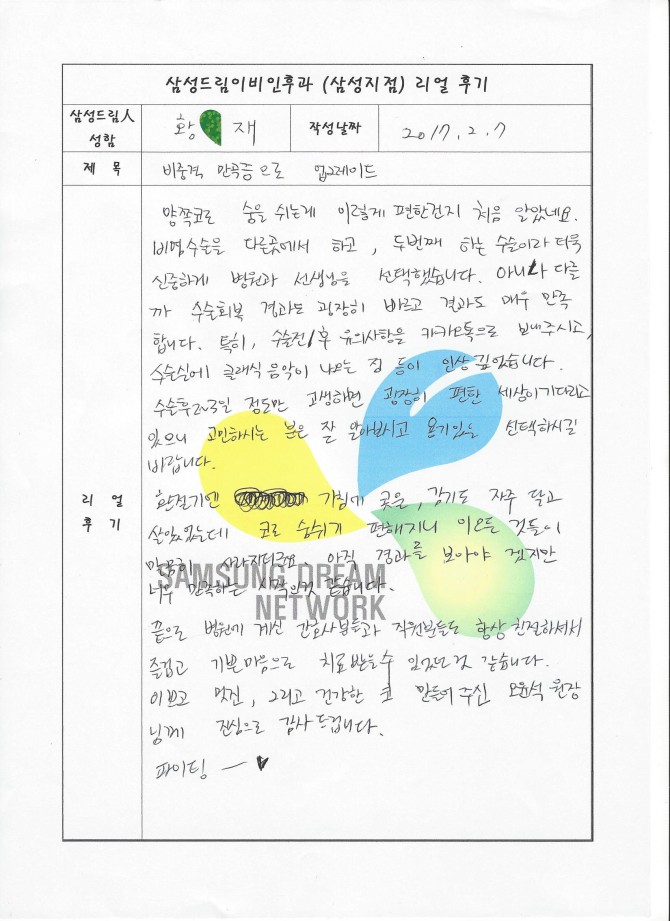 삼성드림이비인후과 (삼성지점) 리얼 후기
삼성드림人
성함
황 재
작성날짜
2017. 2. 7
제 목
비중격 만곡증으로 업그레이드
양쪽코로 숨을 쉬는게 이렇게 편한건지 처음 알았네요.
비염수술을 다른곳에서 하고, 두번째 하는 수술이라 더욱
신중하게 병원과 선생님을 선택했습니다. 아니나 다를
까 수술회복 경과도 굉장히 빠르고 결과도 매우 만족
합니다. 특히, 수술전/후 유의사항을 카카오톡으로 보내주시고,
수술실에 클래식 음악이 나오는 점 등이 인상 깊었습니다.
수술후 2~3일 정도만 고생하면 굉장히 편한 세상이 기다리고
있으니 고민하시는 분은 잘 알아보시고 용기있는 선택하시길
바랍니다.
리 얼
후 기
환절기엔 기침에 콧물, 감기도 자주 달고
살았었는데 코로 숨쉬기 편해지니 이 모든 것들이
말끔히 사라지더군요. 아직 경과를 보아야 겠지만
너무 만족하는 시작인것 같습니다.
SAMSUNG DREAM
NETWORK
끝으로 병원에 계신 간호사분들과 직원분들도 항상 친절하셔서
즐겁고 기쁜마음으로 치료 받을수 있었던것 같습니다.
이쁘고 멋진, 그리고 건강한 코 만들어 주신 오윤석 원장
님께 진심으로 감사드립니다.
파이팅 ― ♥